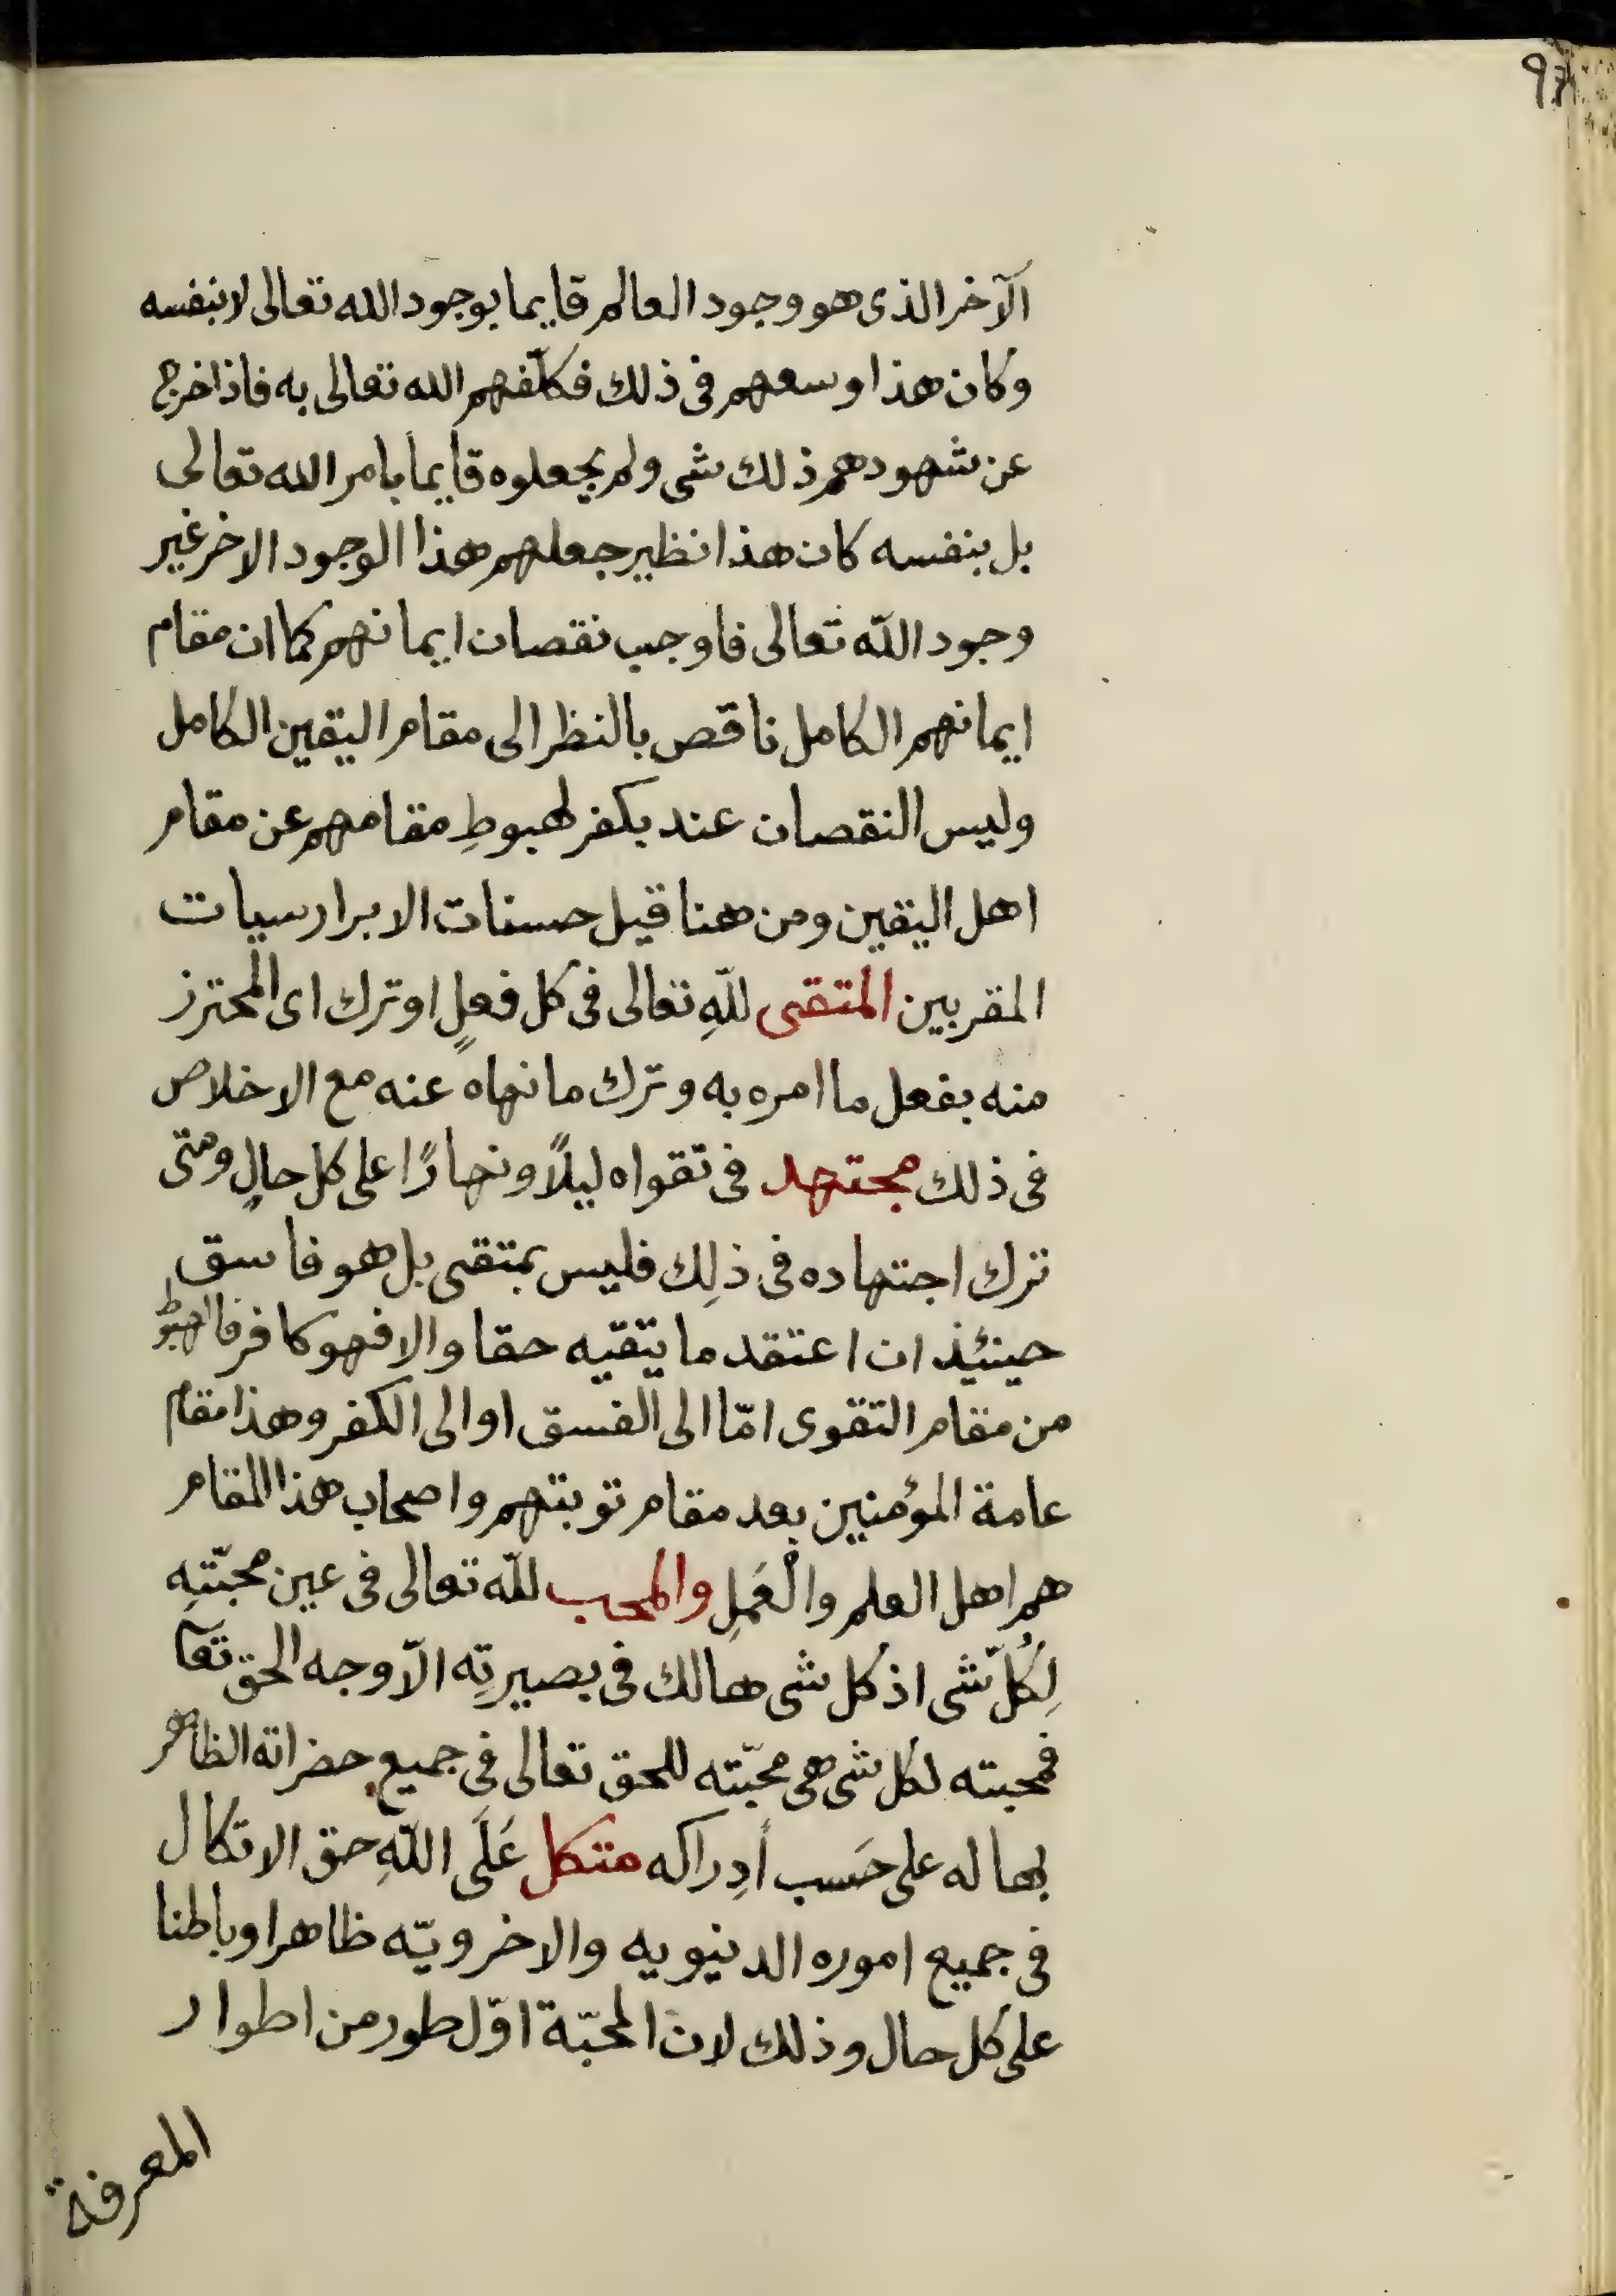 الآخر الذى هو وجود العالم قايما بوجود الله تعالى لا بنفسه
وكان هذا وسعهم فى ذلك فكلّفهم الله تعالى به فاذا خرج
عن شهودهم ذلك شى ولم يجعلوه قايماً بامر الله تعالى
بل بنفسه كان هذا نظير جعلهم هذا الوجود الاخر غير
وجود اللّه تعالى فاوجب نقصان ايمانهم كما ان مقام
ايمانهم الكامل ناقص بالنظر الى مقام اليقين الكامل
وليس النقصان عند بكفر لهبوطِ مقامهم عن مقام
اهل اليقين ومن همنا قيل حسنات الابرار سيات
المقربين المتقى للّهِ تعالى فى كل فعلٍ او ترك اى المحترز
منه بفعل ما امره به وترك ما نهاه عنه مع الاخلاص
فى ذلك مجتهد فى تقواه ليلاً ونهارًا على كل حالٍ ومتى
ترك اجتهاده فى ذلِك فليس بمتقى بل هو فاسق
حينئيذ ان اعتقد ما يتقيه حقا والا فهو كافر فالهبوط
من مقام التقوى امّا الى الفسق او الى الكفر وهذا مقام
عامة المؤمنين بعد مقام توبتهم واصحاب هذا المقام
هم اهل العلم والْعَمَلِ والمحب للّه تعالى فى عين محبّتِه
لِكُلّ شى اذ كل شى هالك فى بصيرتِه الاّ وجه الحق تعا
فمحبته لكل شى هى محبّته للحق تعالى فى جميع حضراته الظاهر
بها له على حَسب أدِراكه متكل عَلَى اللّهِ حق الاتكال
فى جميع اموره الدنيويه والاخرويّه ظاهرا وباطنا
على كل حال وذلك لان المحبّة اوّل طور من اطوار
المعرفة